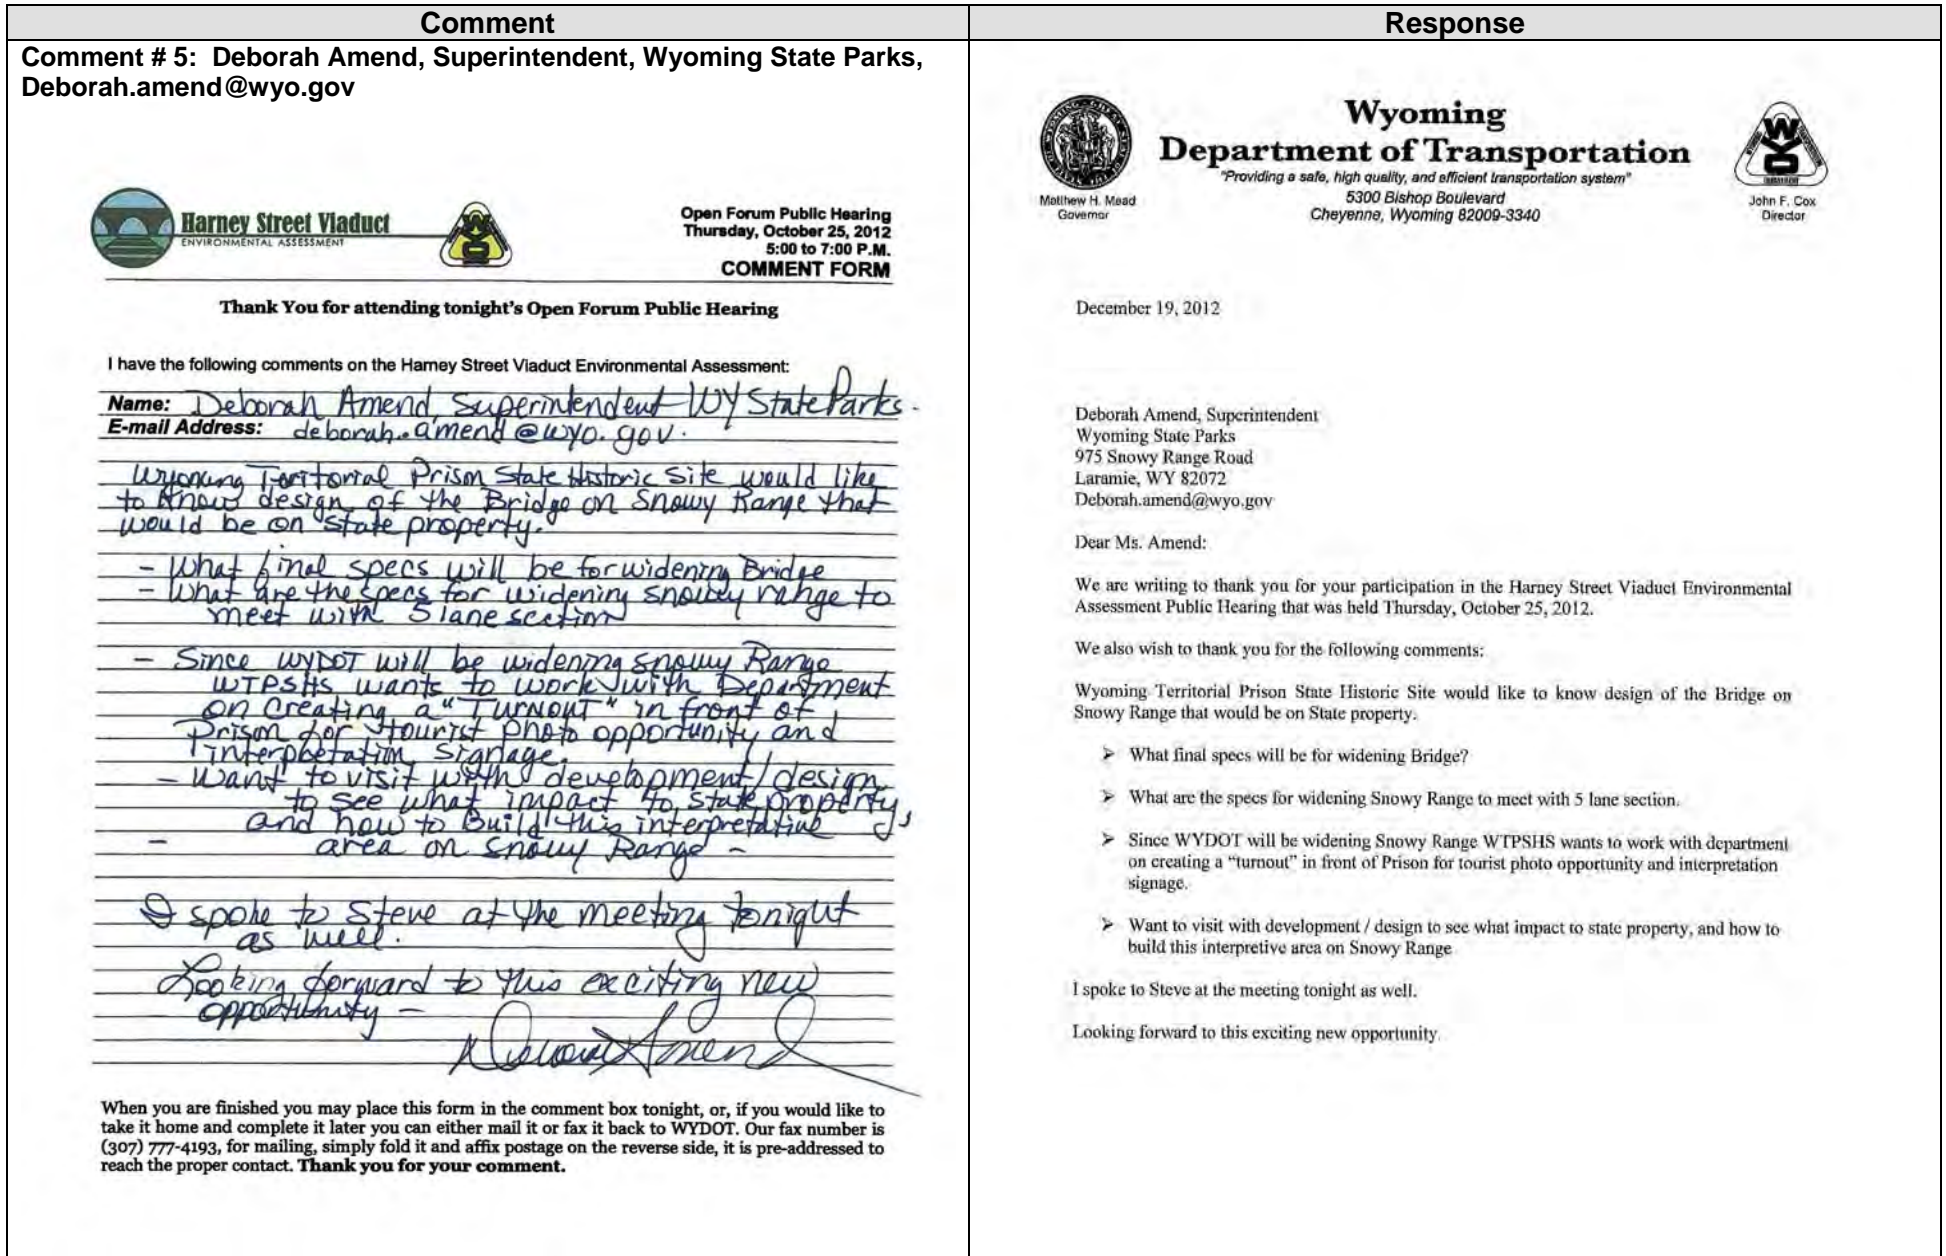 Comment
Comment # 5: Deborah Amend, Superintendent, Wyoming State Parks,
Deborah.amend@wyo.gov
Harney Street Viaduct
ENVIRONMENTAL ASSESSMENT
WYO
Open Forum Public Hearing
Thursday, October 25, 2012
5:00 to 7:00 P.M.
COMMENT FORM
Thank You for attending tonight's Open Forum Public Hearing
I have the following comments on the Harney Street Viaduct Environmental Assessment:
Name: Deborah Amend, Superintendent WY State Parks.
E-mail Address: deborah.amend@wyo.gov.
Wyoming Territorial Prison State Historic Site would like
to know design of the Bridge on Snowy Range that
would be on State property.
- What final specs will be for widening Bridge
- What are the specs for widening snowy range to
meet with 5 lane section
- Since WYDOT will be widening snowy Range
WTPSHS wants to work with Department
on creating a "TURNOUT" in front of
Prison for tourist photo opportunity and
interpretation signage.
- want to visit with development/design
to see what impact to state property,
and how to build this interpretative
- area on Snowy Range -
I spoke to Steve at the meeting tonight
as well.
Looking forward to this exciting new
opportunity -
When you are finished you may place this form in the comment box tonight, or, if you would like to
take it home and complete it later you can either mail it or fax it back to WYDOT. Our fax number is
(307) 777-4193, for mailing, simply fold it and affix postage on the reverse side, it is pre-addressed to
reach the proper contact. Thank you for your comment.
Response
Wyoming
Department of Transportation
"Providing a safe, high quality, and efficient transportation system"
5300 Bishop Boulevard
Cheyenne, Wyoming 82009-3340
Matthew H. Mead
Governor
WYO
John F. Cox
Director
December 19, 2012
Deborah Amend, Superintendent
Wyoming State Parks
975 Snowy Range Road
Laramie, WY 82072
Deborah.amend@wyo.gov
Dear Ms. Amend:
We are writing to thank you for your participation in the Harney Street Viaduct Environmental
Assessment Public Hearing that was held Thursday, October 25, 2012.
We also wish to thank you for the following comments:
Wyoming Territorial Prison State Historic Site would like to know design of the Bridge on
Snowy Range that would be on State property.
➢ What final specs will be for widening Bridge?
➢ What are the specs for widening Snowy Range to meet with 5 lane section.
➢ Since WYDOT will be widening Snowy Range WTPSHS wants to work with department
on creating a "turnout" in front of Prison for tourist photo opportunity and interpretation
signage.
➢ Want to visit with development / design to see what impact to state property, and how to
build this interpretive area on Snowy Range
I spoke to Steve at the meeting tonight as well.
Looking forward to this exciting new opportunity.